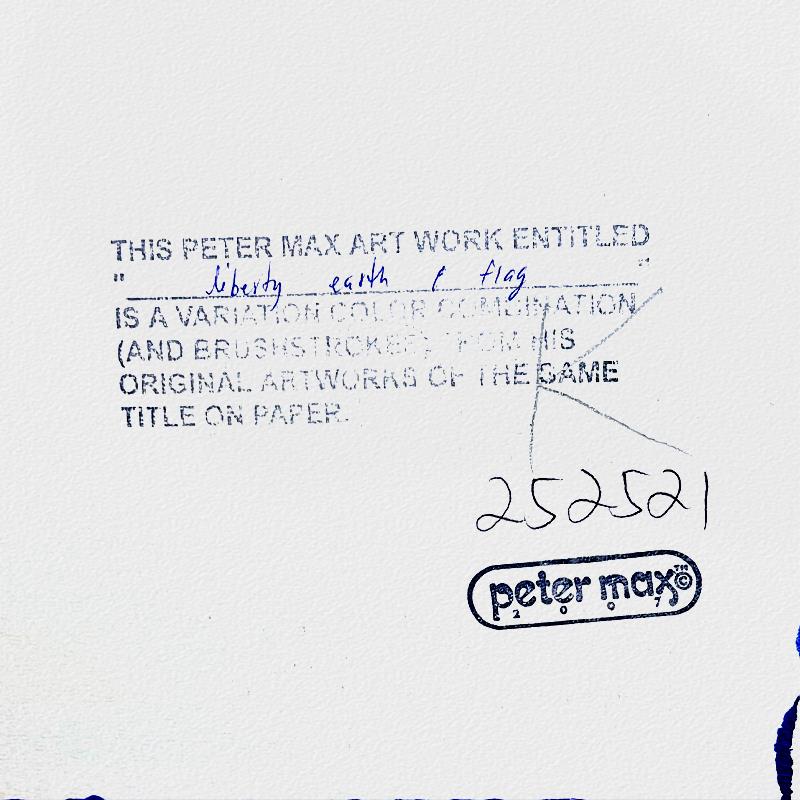 THIS PETER MAX ART WORK ENTITLED
" liberty earth & flag "
IS A VARIATION COLOR COMBINATION
(AND BRUSHSTROKES), FROM HIS
ORIGINAL ARTWORKS OF THE SAME
TITLE ON PAPER.
K
252521
peter max™©
2 0 0 7